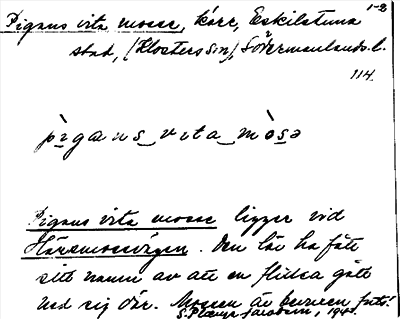 1-2
Pigans vita mosse, kärr, Eskilstuna
stad, (Klosters sn), Södermanlands l.
114.
pìgans vita mòsə
Pigans vita mosse ligger vid
. Den lär ha fått
sitt namn av att en flicka gått
ned sig där. Mossen är beväxen
S. Jacobson, 1940.